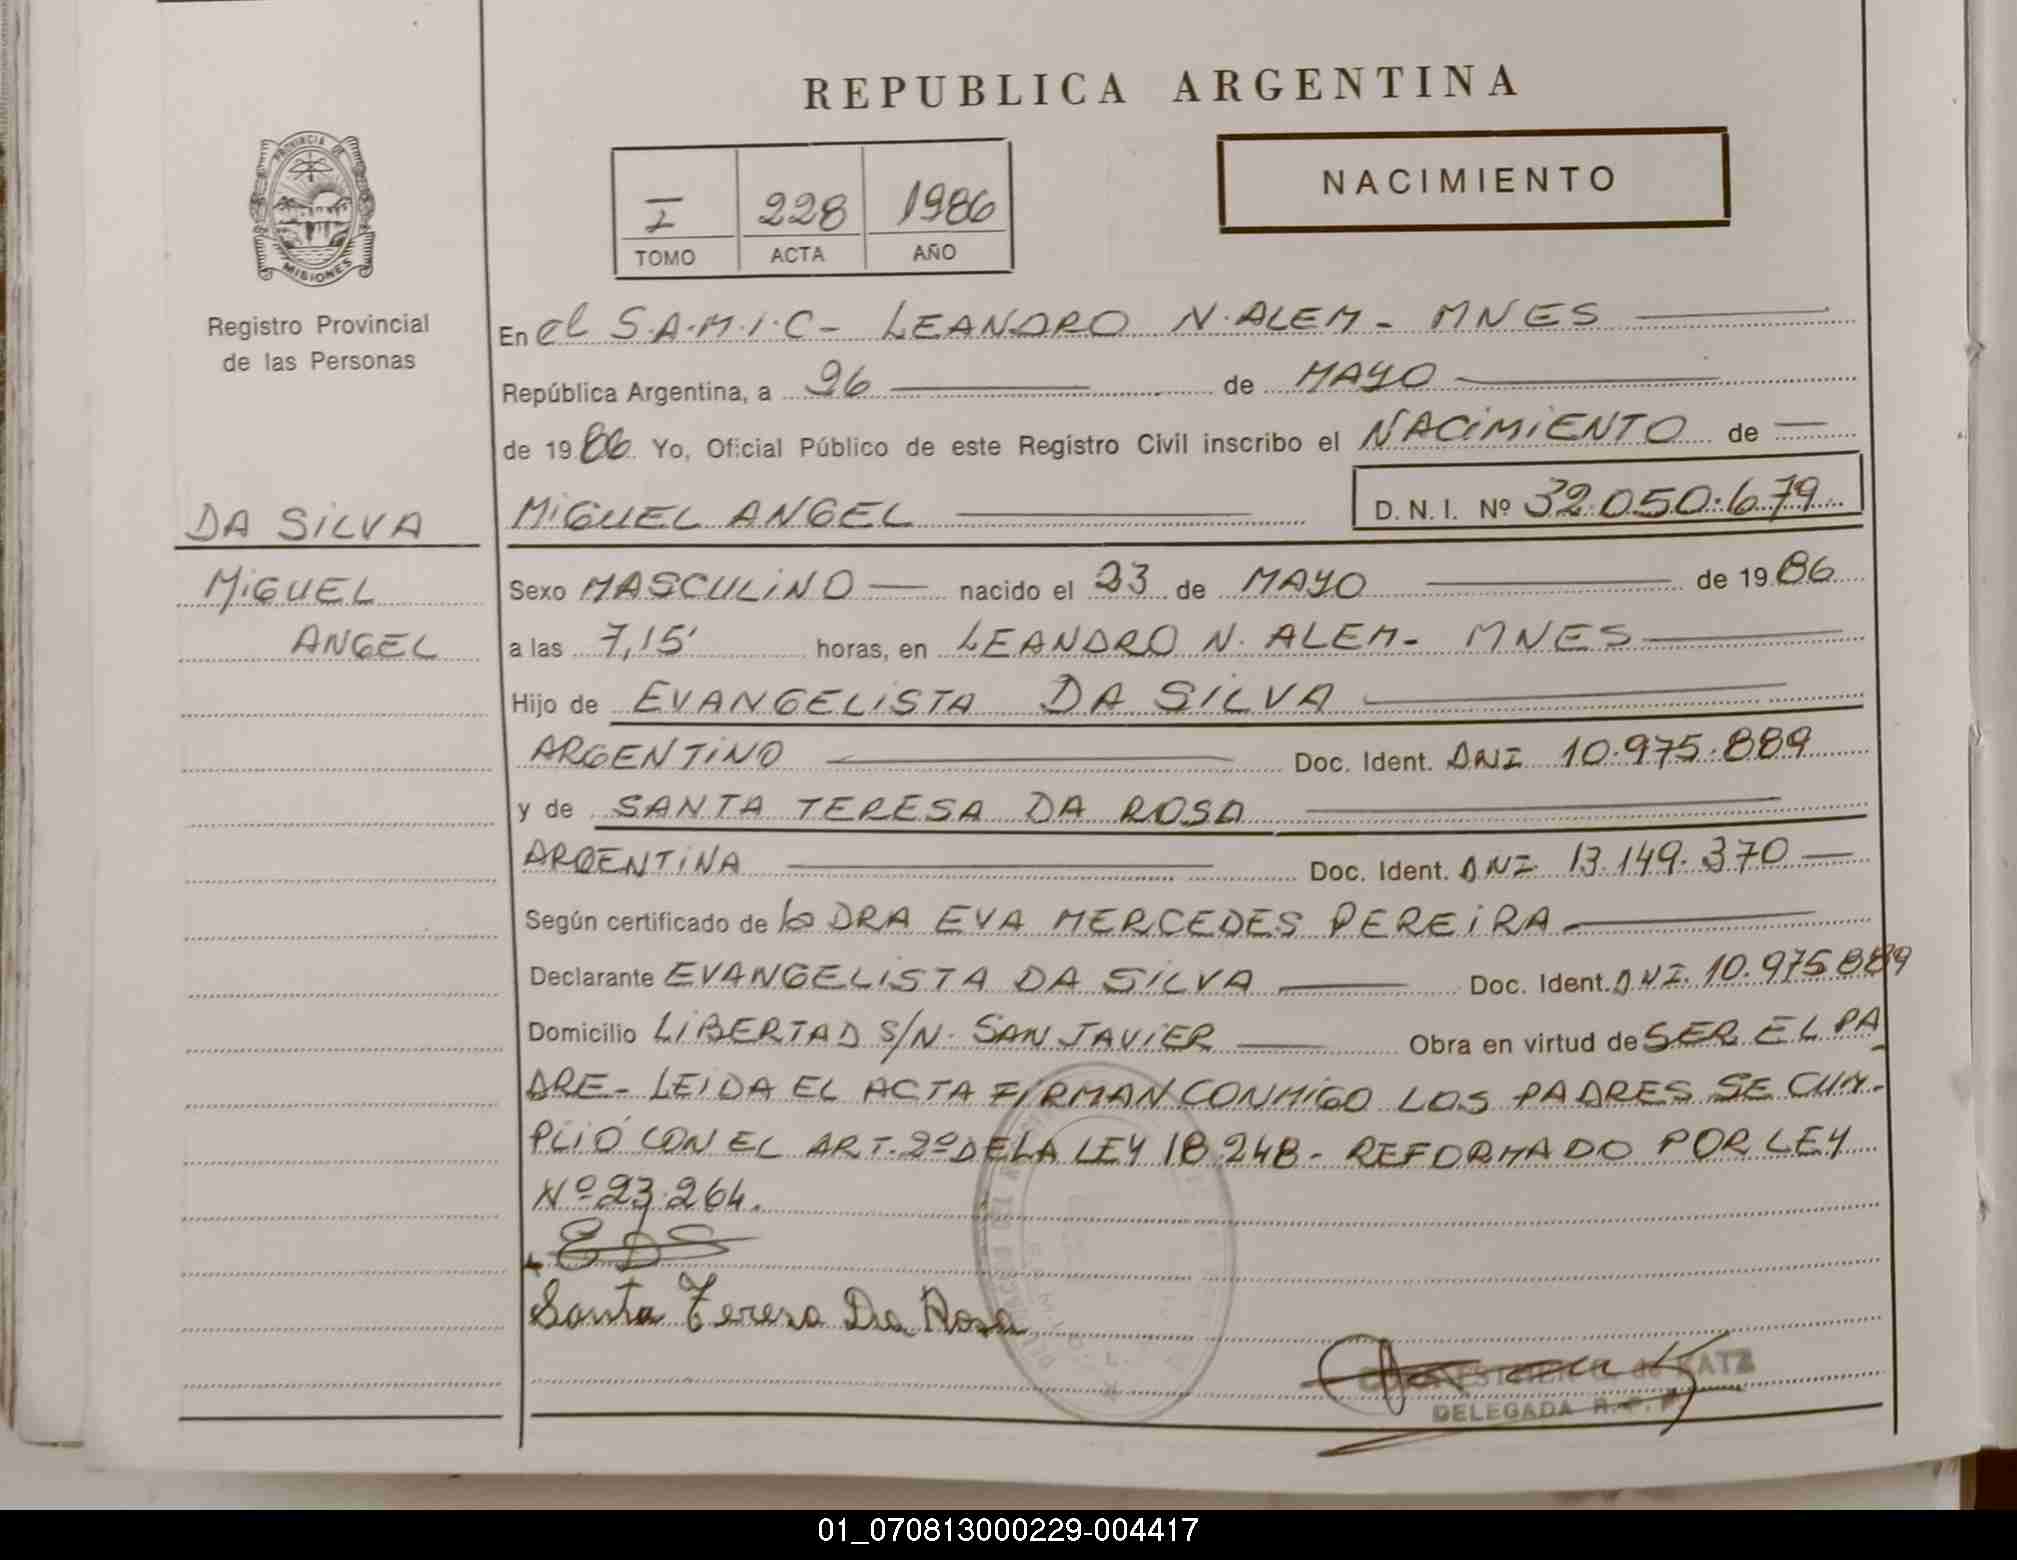 REPUBLICA ARGENTINA
PROVINCIA DE
MISIONES
Registro Provincial
de las Personas
I 228 1986
TOMO ACTA AÑO
NACIMIENTO
En el S.A.M.I.C- LEANDRO N. ALEM - MNES
República Argentina, a 26 de MAYO
de 1986 Yo, Oficial Público de este Registro Civil inscribo el NACIMIENTO de
DA SILVA
MIGUEL ANGEL D.N.I. Nº 32.050.679
MIGUEL
ANGEL
Sexo MASCULINO nacido el 23 de MAYO de 1986
a las 7,15' horas, en LEANDRO N. ALEM- MNES
Hijo de EVANGELISTA DA SILVA
ARGENTINO Doc. Ident. DNI 10.975.889
y de SANTA TERESA DA ROSA
ARGENTINA Doc. Ident. DNI 13.149.370
Según certificado de la DRA EVA MERCEDES PEREIRA
Declarante EVANGELISTA DA SILVA Doc. Ident. DNI. 10.975889
Domicilio LIBERTAD S/N. SAN JAVIER Obra en virtud de SER EL PA
DRE- LEIDA EL ACTA FIRMAN CONMIGO LOS PADRES SE CUM-
PLIÓ CON EL ART. 2º DE LA LEY 18.248- REFORMADO POR LEY
Nº 23.264.
EDS
Santa Teresa Da Rosa
de KATZ
DELEGADA R.P.P.
01_070813000229-004417